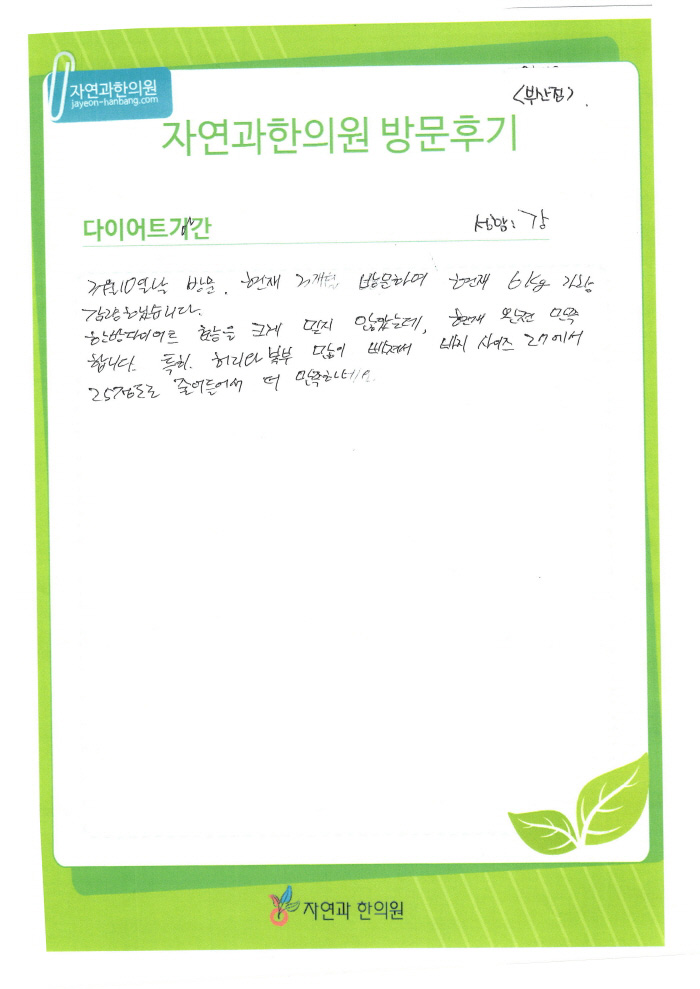 자연과한의원
jayeon-hanbang.com
<부산점>
자연과한의원 방문후기
다이어트기간
성함: 강
3월10일날 방문. 현재 3개월 방문하여 현재 6kg 가량
감량하였습니다.
한방다이어트 효능을 크게 믿지 않았는데, 현재 완전 만족
합니다. 특히. 허리와 복부 많이 빠져서 바지 사이즈 27에서
25정도로 줄어들어서 더 만족하네요.
자연과 한의원